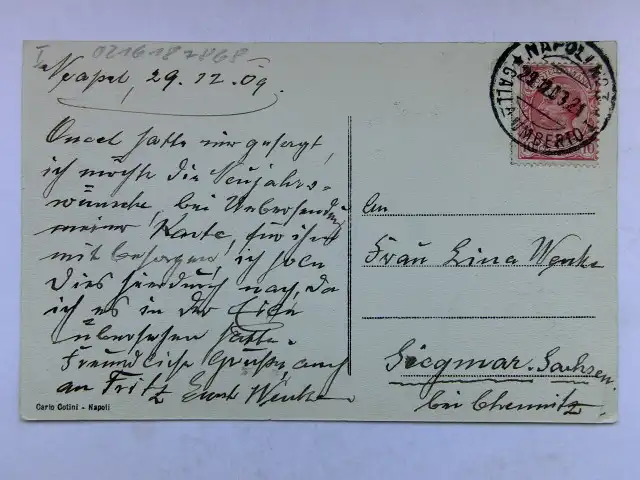 I 0216182868
Neapel, 29.12.09.
NAPOLI
GALL. UMBERTO I
29.12.09.21
10
Onkel hatte mir gesagt,
ich möchte die Neujahrs-
wünsche bei Uebersendung
meiner Karte, für ihn
mit besorgen, ich hole
dies hierdurch nach, da
ich es in der Eile
übersehen hatte.
Freundliche Grüße, auch
an Fritz
An
Frau Lina
Siegmar. Sachsen.
bei Chemnitz.
Carlo Cotini - Napoli